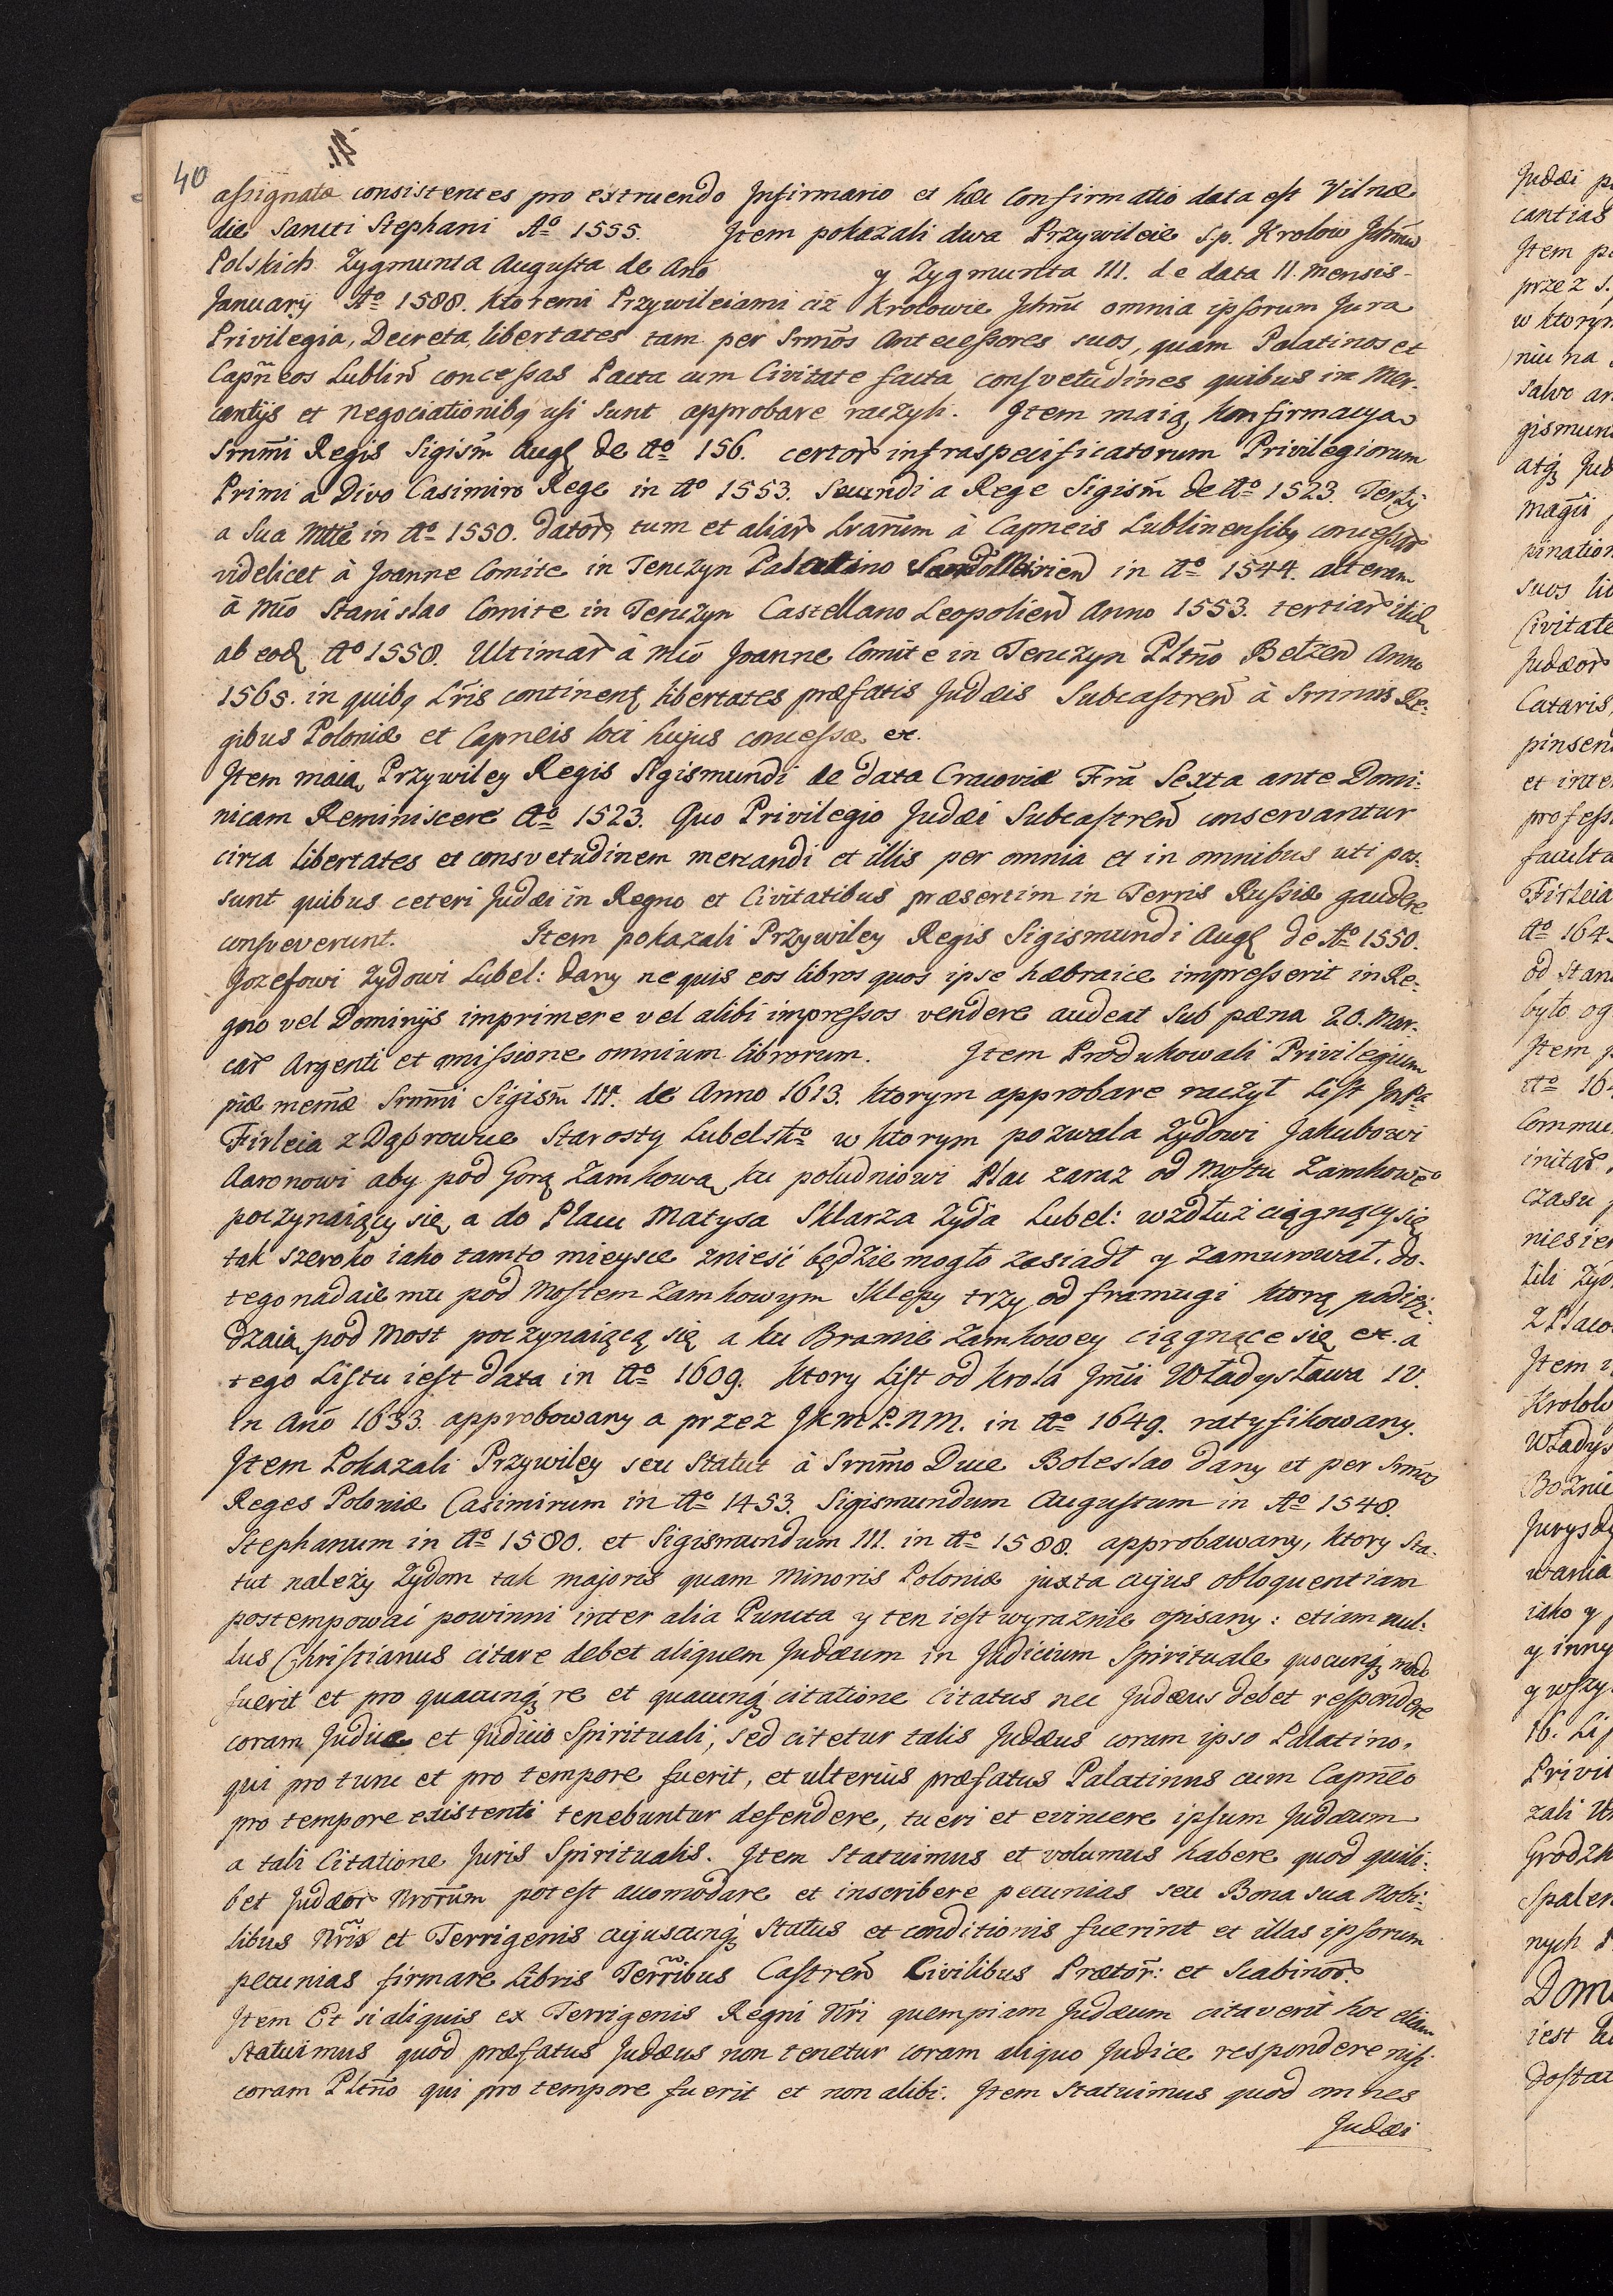 40
assignata consistentes pro extruendo Infirmario et hæc Confirmatio data est Vilnæ
die Sancti Stephani Aº 1555. Item pokazali dwa Przywileie s.p. Krolow Ichmciow
Polskich Zygmunta Augusta de Anō y Zygmunta III. de data 11. mensis
Januarij Aº 1588. ktoremi Przywileiami ciż Krolowie Ichmć omnia ipsorum Jura
Privilegia, Decreta, libertates tam per Srmōs Antecessores suos, quam Palatinos et
Capñeos Lublin̄ concessas Pacta cum Civitate facta consvetudines quibus in Mer-
cantijs et negociationibq usi sunt approbare raczyli. Item maią konfirmacya
Srnm̄i Regis Sigism̄ Aug. de Aº 156. certor̄ infraspecificatorum Privilegiorum
Primi a Divo Casimiro Rege in Aº 1553. Secundi a Rege Sigism̄ de Aº 1523. Tertij
a Sua Mtte in Aº 1550. dator̄, tum et aliar̄ Lrarum à Capneis Lublinensibq concessar̄
videlicet à Joanne Comite in Tenczyn Palatino Sandomirien̄ in Aº 1544. alteram
à Mco Stanislao Comite in Tenczyn Castellano Leopolien̄ Anno 1553. tertiar̄ itid.
ab eod. Aº 1558. Ultimar̄ à Mco Joanne Comite in Tenczyn Pltño Belzen̄ Anno
1565. in quibq Lr̄is continent. libertates præfatis Judæis Subcastren̄ à Srnmis Re-
gibus Poloniæ et Capneis loci hujus concessæ etc.
Item maią Przywiley Regis Sigismundi de data Cracoviæ Frā Sexta ante Domi-
nicam Reminiscere Aº 1523. Quo Privilegio Judæi Subcastren̄ conservantur
circa libertates et consvetudinem mercandi et illis per omnia et in omnibus uti pos-
sunt quibus ceteri Judæi in Regno et Civitatibus præsertim in Terris Russiæ gaudere
consveverunt. Item pokazali Przywiley Regis Sigismundi Aug. de Aº 1550.
Jozefowi Zydowi Lubel: dany ne quis eos libros quos ipse hæbraice impresserit in Re-
gno vel Dominijs imprimere vel alibi impressos vendere audeat sub pæna 20. Mar-
car̄ Argenti et amissione omnium librorum. Item Produkowali Privilegium
piæ mem̄æ Srnm̄i Sigism̄ III. de Anno 1613. ktorym approbare raczył List
Firleia z Dąbrowice Starosty Lubelskº w ktorym pozwala Zydowi Jakubowi
Aaronowi aby pod Gorą Zamkową ku południowi Plac zaraz od Mostu Zamkowēº
poczynaiący się a do Placu Matysa Sklarza Zyda Lubel: wzdłuż ciągnący się
tak szeroko iako tamto mieysce znieść będzie mogło zasiadł y zamurował. do-
tego nadaie mu pod Mostem Zamkowym Sklepy trzy od framugi ktorą podież-
dżaią pod Most poczynaiącą się a ku Bramie Zamkowey ciągnące się etc. a
tego Listu iest data in Aº 1609. Ktory List od Krola Jm̄ci Władysława IV.
in Anō 1633. approbowany a przez JKM P. N M. in Aº 1649. ratyfikowany.
Item Pokazali Przywiley seu Statut à Srnm̄o Duce Boleslao dany et per Srmōs
Reges Poloniæ Casimirum in Aº 1453. Sigismundum Augustum in Aº 1548.
Stephanum in Aº 1580. et Sigismundum III. in Aº 1588. approbawany, ktory Sta-
tut należy Zydom tak majoris quam minoris Poloniæ juxta cujus obloquentiam
postempować powinni inter alia Puncta y ten iest wyraznie opisany: etiam nul-
lus Christianus citare debet aliquem Judæum in Judicium Spirituale quocunq modo
fuerit et pro quacunq re et quacunq citatione citatus nec Judæus debet respondere
coram Judice et Judicio Spirituali, sed citetur talis Judæus coram ipso Palatino,
qui pro tunc et pro tempore fuerit, et ulterius præfatus Palatinus cum Capñeo
pro tempore existenti tenebuntur defendere, tueri et evincere ipsum Judæum
a tali Citatione Juris Spiritualis. Item Statuimus et volumus habere quod quili-
bet Judæor̄ Nrorum potest accomodare et inscribere pecunias seu Bona sua Nobi-
libus Nr̄is et Terrigenis cujuscunq Status et conditionis fuerint et illas ipsorum
pecunias firmare Libris Terr̄ibus Castren̄ Civilibus Prætor̄: et Scabinor̄.
Item Et si aliquis ex Terrigenis Regni Nr̄i quempiam Judæum citaverit hoc etiam
Statuimus quod præfatus Judæus non tenetur coram aliquo Judice respondere nisi
coram Pltño qui pro tempore fuerit et non alibi. Item Statuimus quod omnes
Judæi